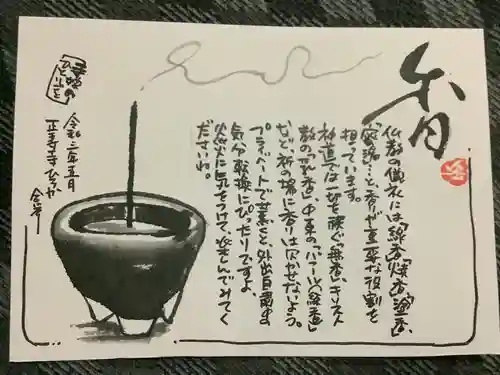 香
仏教の儀礼には「線香」「焼香」「塗香」
「密壇」…と、香りが重要な役割を
担っています。
神道では一切を嫌ぐ「無香」キリスト
教の「乳香」、中東の「バフール(線香)」
など、祈りの場に香りは欠かせないよう。
プライベートで薫くと、外出自粛中の
気分転換にぴったりですよ。
火気に気をつけて、楽しんでみてく
ださいね。
ひとりごと
令和二年五月
正寺ひろか
合掌